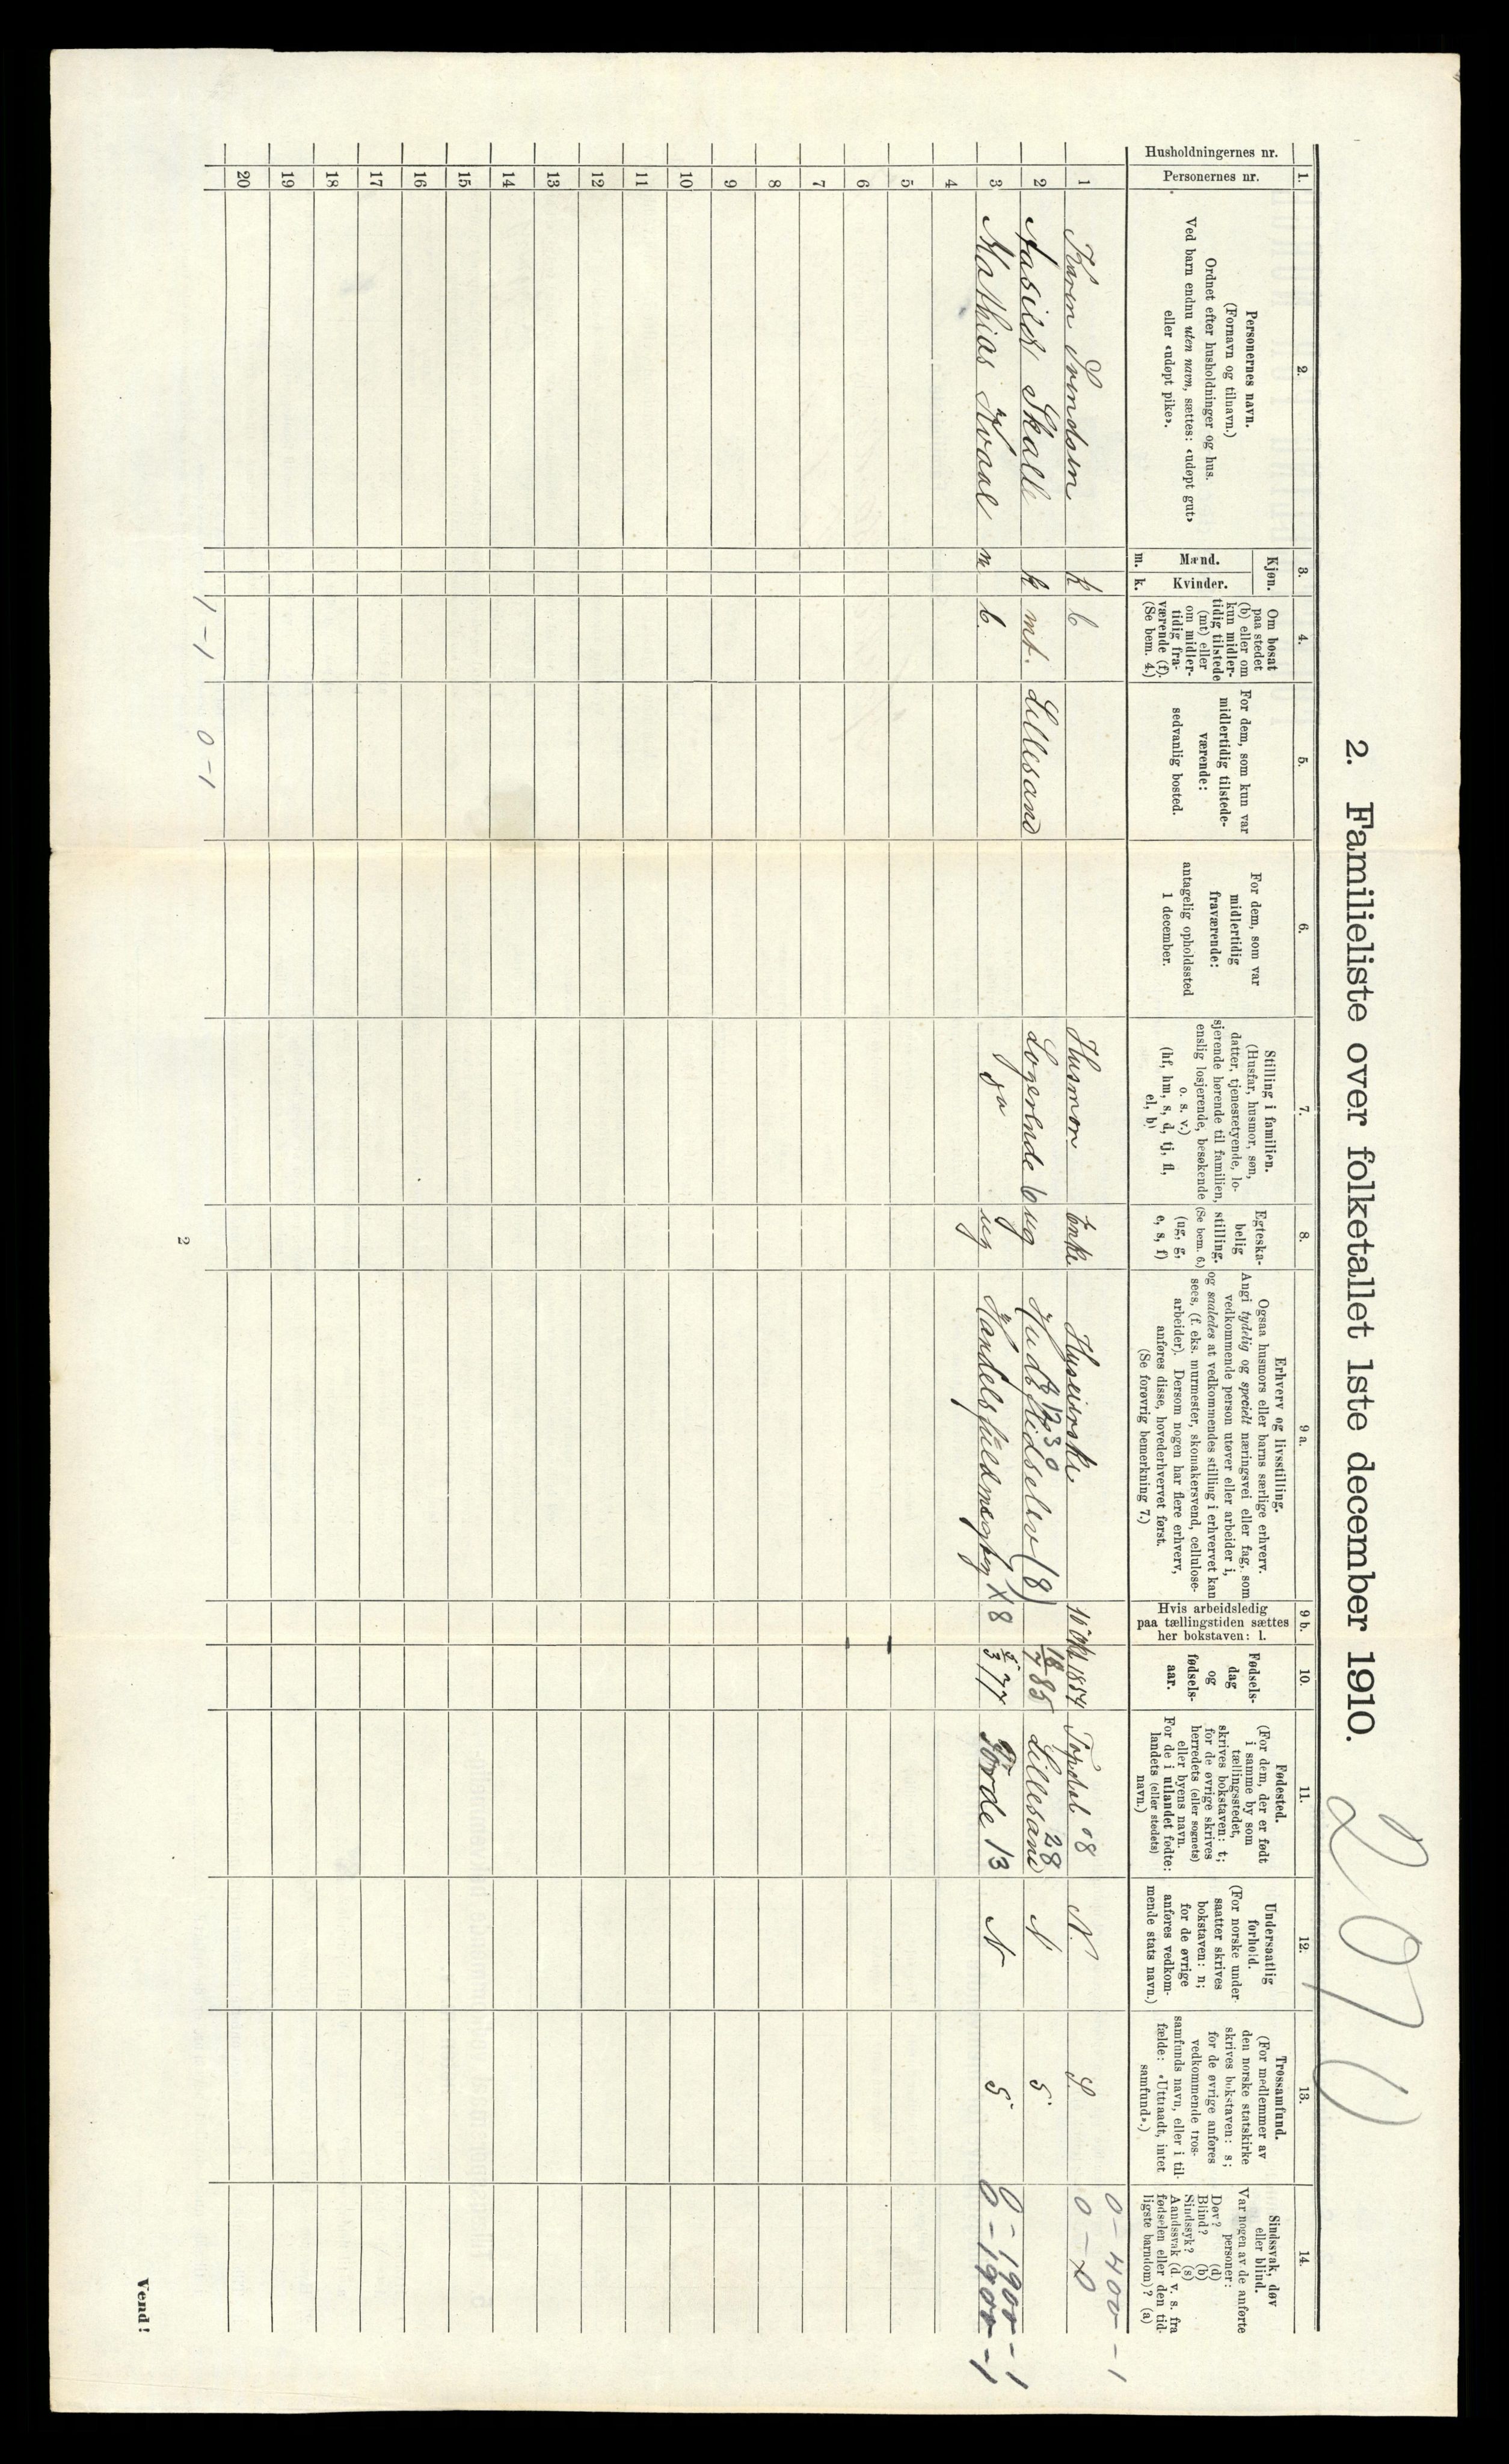 2. Familieliste over folketallet 1ste december 1910.
1.
Husholdningernes nr.
Personernes nr.
2.
Personernes navn.
(Fornavn og tilnavn.)
Ordnet efter husholdninger og hus.
Ved barn endnu uten navn, sættes: «udøpt gut»
eller «udøpt pike».
3.
Kjøn.
Mænd.
Kvinder.
m.
k.
4.
Om bosat
paa stedet
(b) eller om
kun midler-
tidig tilstede
(mt) eller
om midler-
tidig fra-
værende (f).
(Se bem. 4.)
5.
For dem, som kun var
midlertidig tilstede-
værende:
sedvanlig bosted.
6.
For dem, som var
midlertidig
fraværende:
antagelig opholdssted
1 december.
7.
Stilling i familien.
(Husfar, husmor, søn,
datter, tjenestetyende, lo-
sjerende hørende til familien,
enslig losjerende, besøkende
o. s. v.)
(hf, hm, s, d, tj, fl,
el, b)
8.
Egteska-
belig
stilling.
(Se bem. 6.)
(ug, g,
e, s, f)
9 a.
Erhverv og livsstilling.
Ogsaa husmors eller barns særlige erhverv.
Angi tydelig og specielt næringsvei eller fag, som
vedkommende person utøver eller arbeider i,
og saaledes at vedkommendes stilling i erhvervet kan
sees, (f. eks. murmester, skomakersvend, cellulose-
arbeider). Dersom nogen har flere erhverv,
anføres disse, hovederhvervet først.
(Se forøvrig bemerkning 7.)
9 b.
Hvis arbeidsledig
paa tællingstiden sættes
her bokstaven: l.
10.
Fødsels-
dag
og
fødsels-
aar.
11.
Fødested.
(For dem, der er født
i samme by som
tællingsstedet,
skrives bokstaven: t;
for de øvrige skrives
herredets (eller sognets)
eller byens navn.
For de i utlandet fødte:
landets (eller stedets)
navn.)
12.
Undersaatlig
forhold.
(For norske under-
saatter skrives
bokstaven: n;
for de øvrige
anføres vedkom-
mende stats navn.)
13.
Trossamfund.
(For medlemmer av
den norske statskirke
skrives bokstaven: s;
for de øvrige anføres
vedkommende tros-
samfunds navn, eller i til-
fælde: «Uttraadt, intet
samfund».)
14.
Sindssvak, døv
eller blind.
Var nogen av de anførte
personer:
Døv? (d)
Blind? (b)
Sindssyk? (s)
Aandssvak (d. v. s. fra
fødselen eller den tid-
ligste barndom)? (a)
0-400-1
1 Karen Svendsen k b Husmor Enke Huseierske 1854 Topdal 08 N. S. 0-0
2 Aasild Skalle k mt. Lillesand Logerende b ug (8) 18/7 85 Lillesand 28 N S 0-1900-1
3 Mathias Kvaal m b. ug Handelsfuldmegtig X8 5/3 77 Førde 13 N S 0-1900-1
4
5
6
7
8
9
10
11
12
13
14
15
16
17
18
19
20
1-1 0-1
2
Vend!